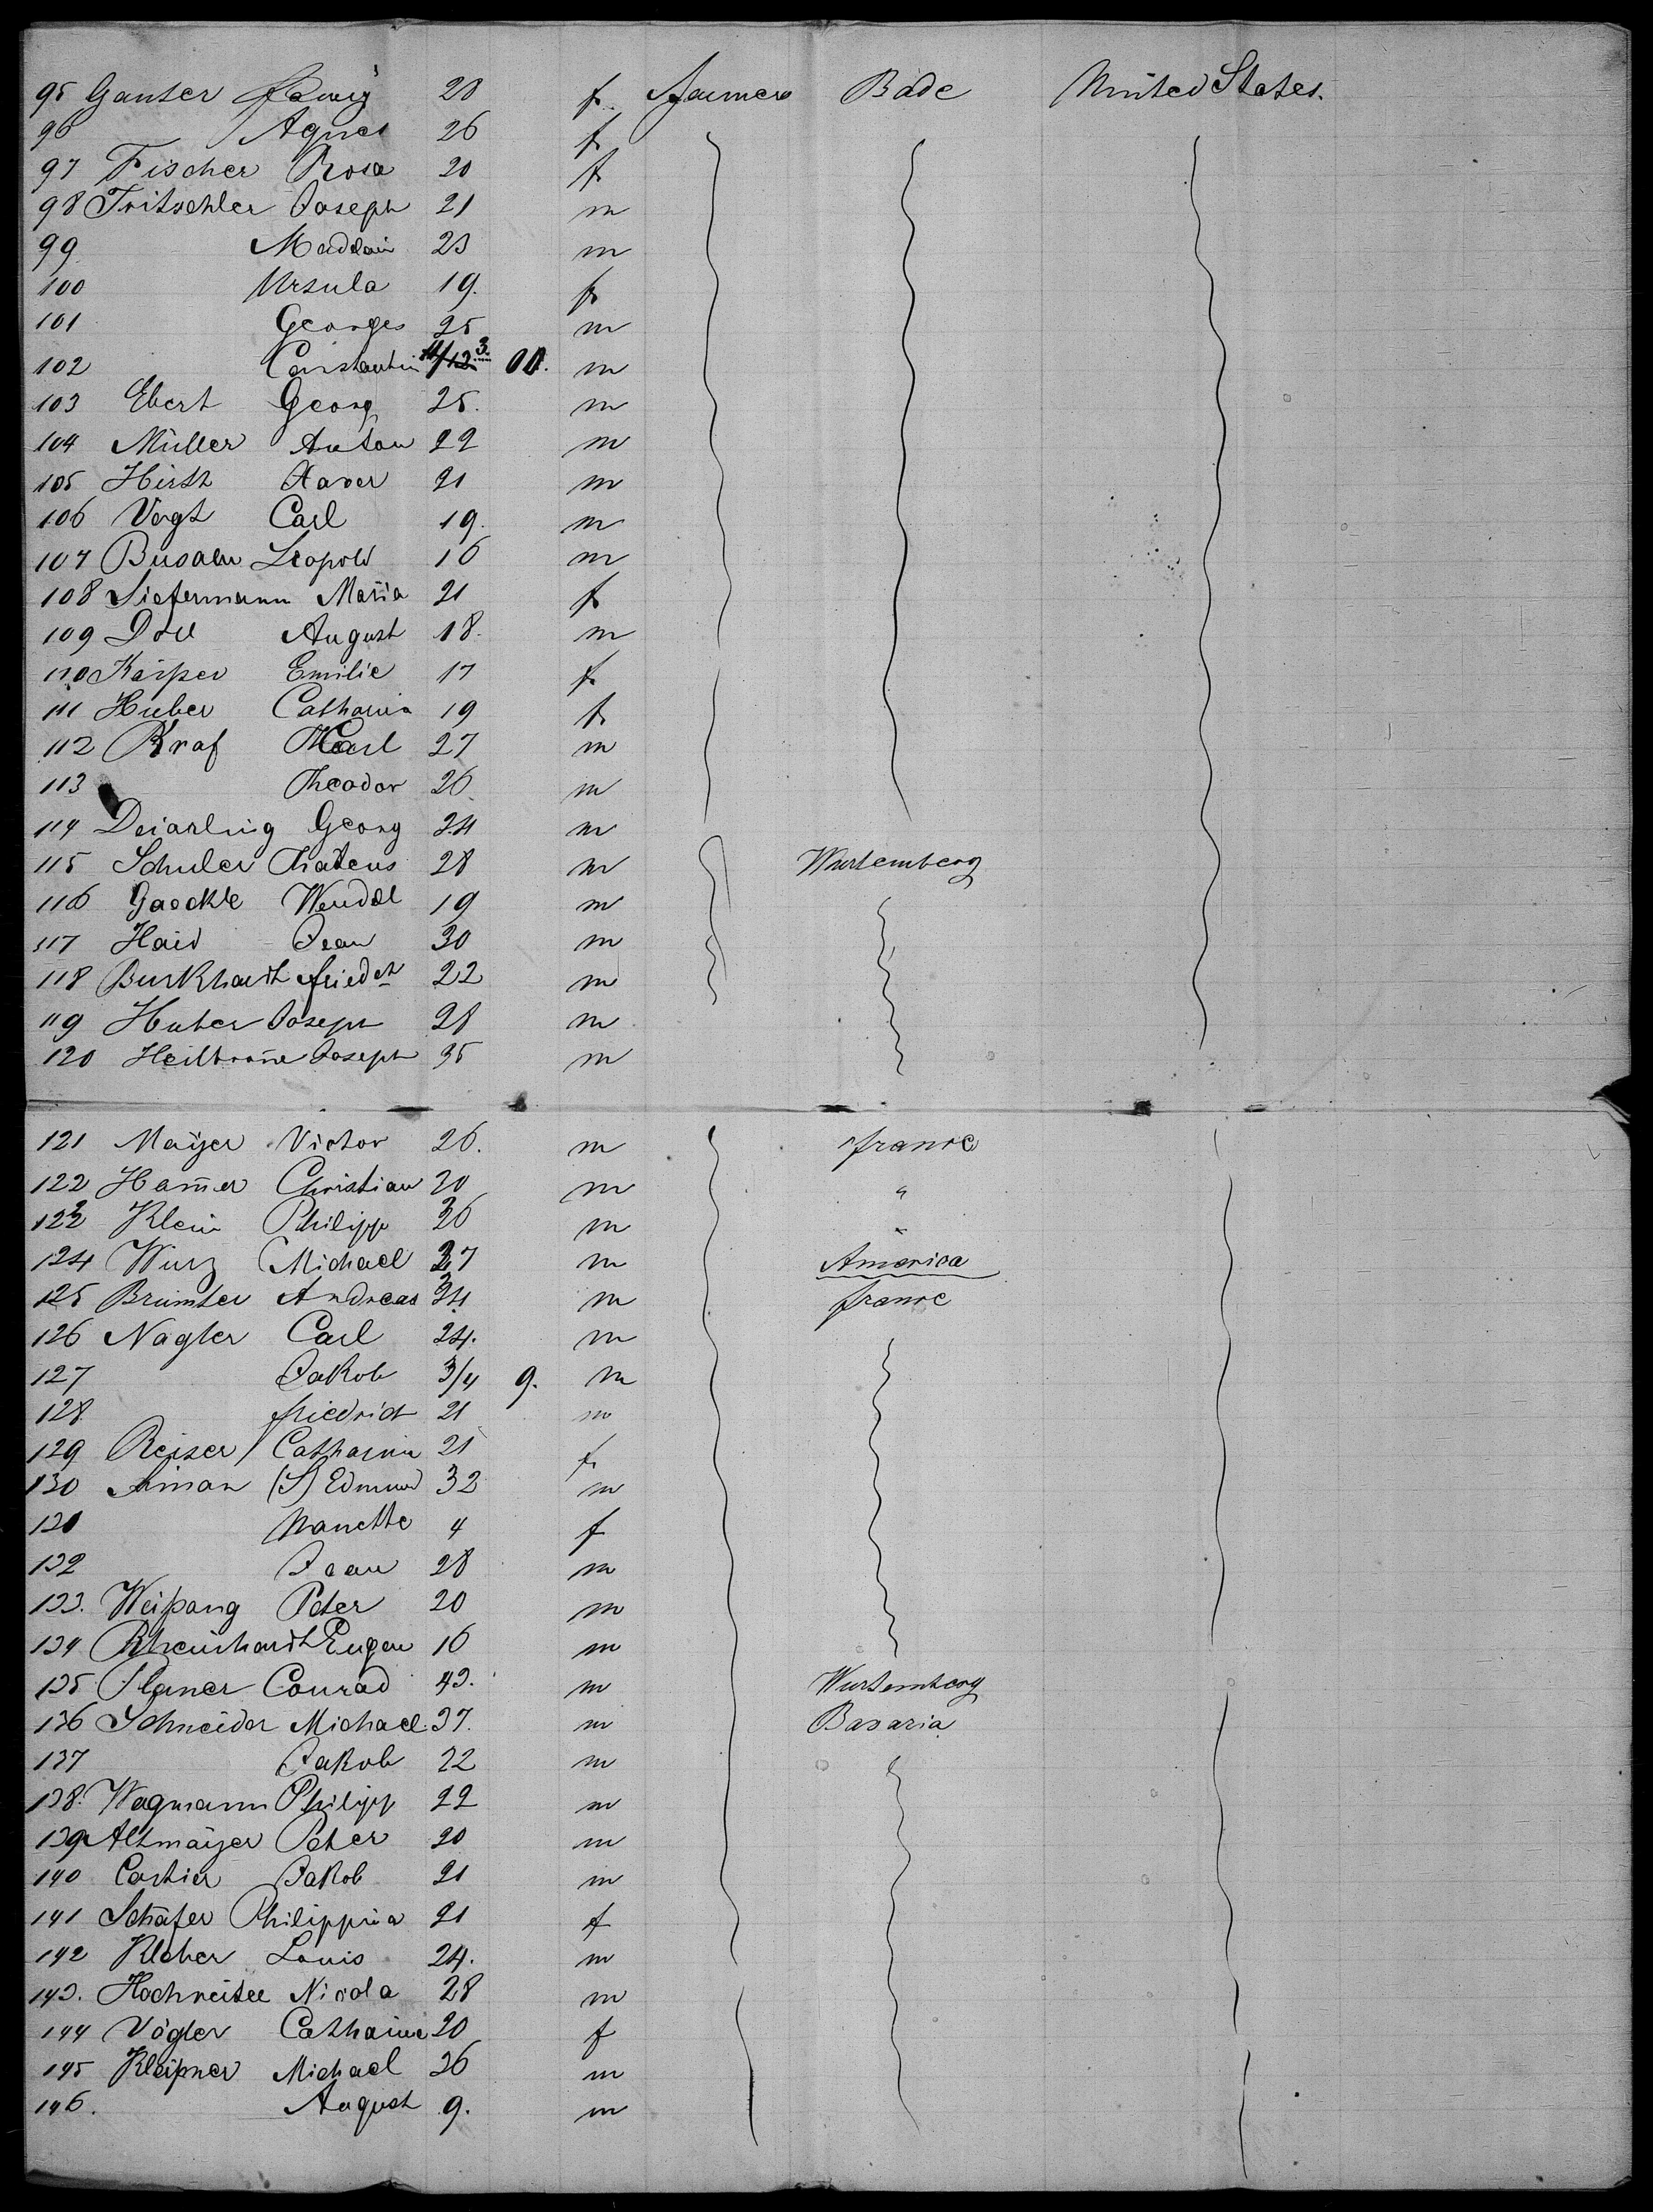 95 Ganter 28 f. Farmer Bade United States.
96 Agnes 26 f
97 Fischer Rosa 20 f
98 Fritschler Joseph 21 m
99 23 m
100 Ursula 19. f
101 Georges 25 m
102 Constantin 11/12 3. m
103 Ebert Georg 25. m
104 Müller Anton 22 m
105 Hirth Xaver 21 m
106 Vogt Carl 19. m
107 Busam Leopold 16 m
108 Siefermann Maria 21 f
109 Doll August 18. m
110 Kasper Emilie 17 f.
111 Huber Catharina 19 f.
112 Kraf Karl 27 m
113 Theodor 26. m
114 Georg 24 m
115 Schuler 28 m Wurtemberg
116 Wendel 19 m
117 Haid Jean 30 m
118 Burkhardt Friedch 22 m
119 Huber Joseph 28 m
120 Joseph 35 m
121 Mayer Victor 26. m France
122 Ham̄er Christian 20 m "
123 Klein Philipp 36 m "
124 Wurz Michael 37 m America
125 Brumter Andreas 34 m France
126 Nagler Carl 24. m
127 Jakob 3/4 9. m
128 Friedrich 21 m
129 Reiser Catharina 21 f.
130 (S) Edmund 32 m
131 Nanette 4 f
132 Jean 28 m
133. Weißang Peter 20 m
134 Rheinhardt Eugen 16 m
135 Conrad 43. m Wurtemberg
136 Schneider Michael 37. m Bavaria
137 Jakob 22 m
138. Wagmann Philipp 22 m
139 Altmayer Peter 20 m
140 Cartier Jakob 21 m
141 Schäfer Philippina 21 f
142 Louis 24. m
143. Nicola 28 m
144 Vögler Catharine 20 f
145 Kleißner Michael 26 m
146. August 9. m